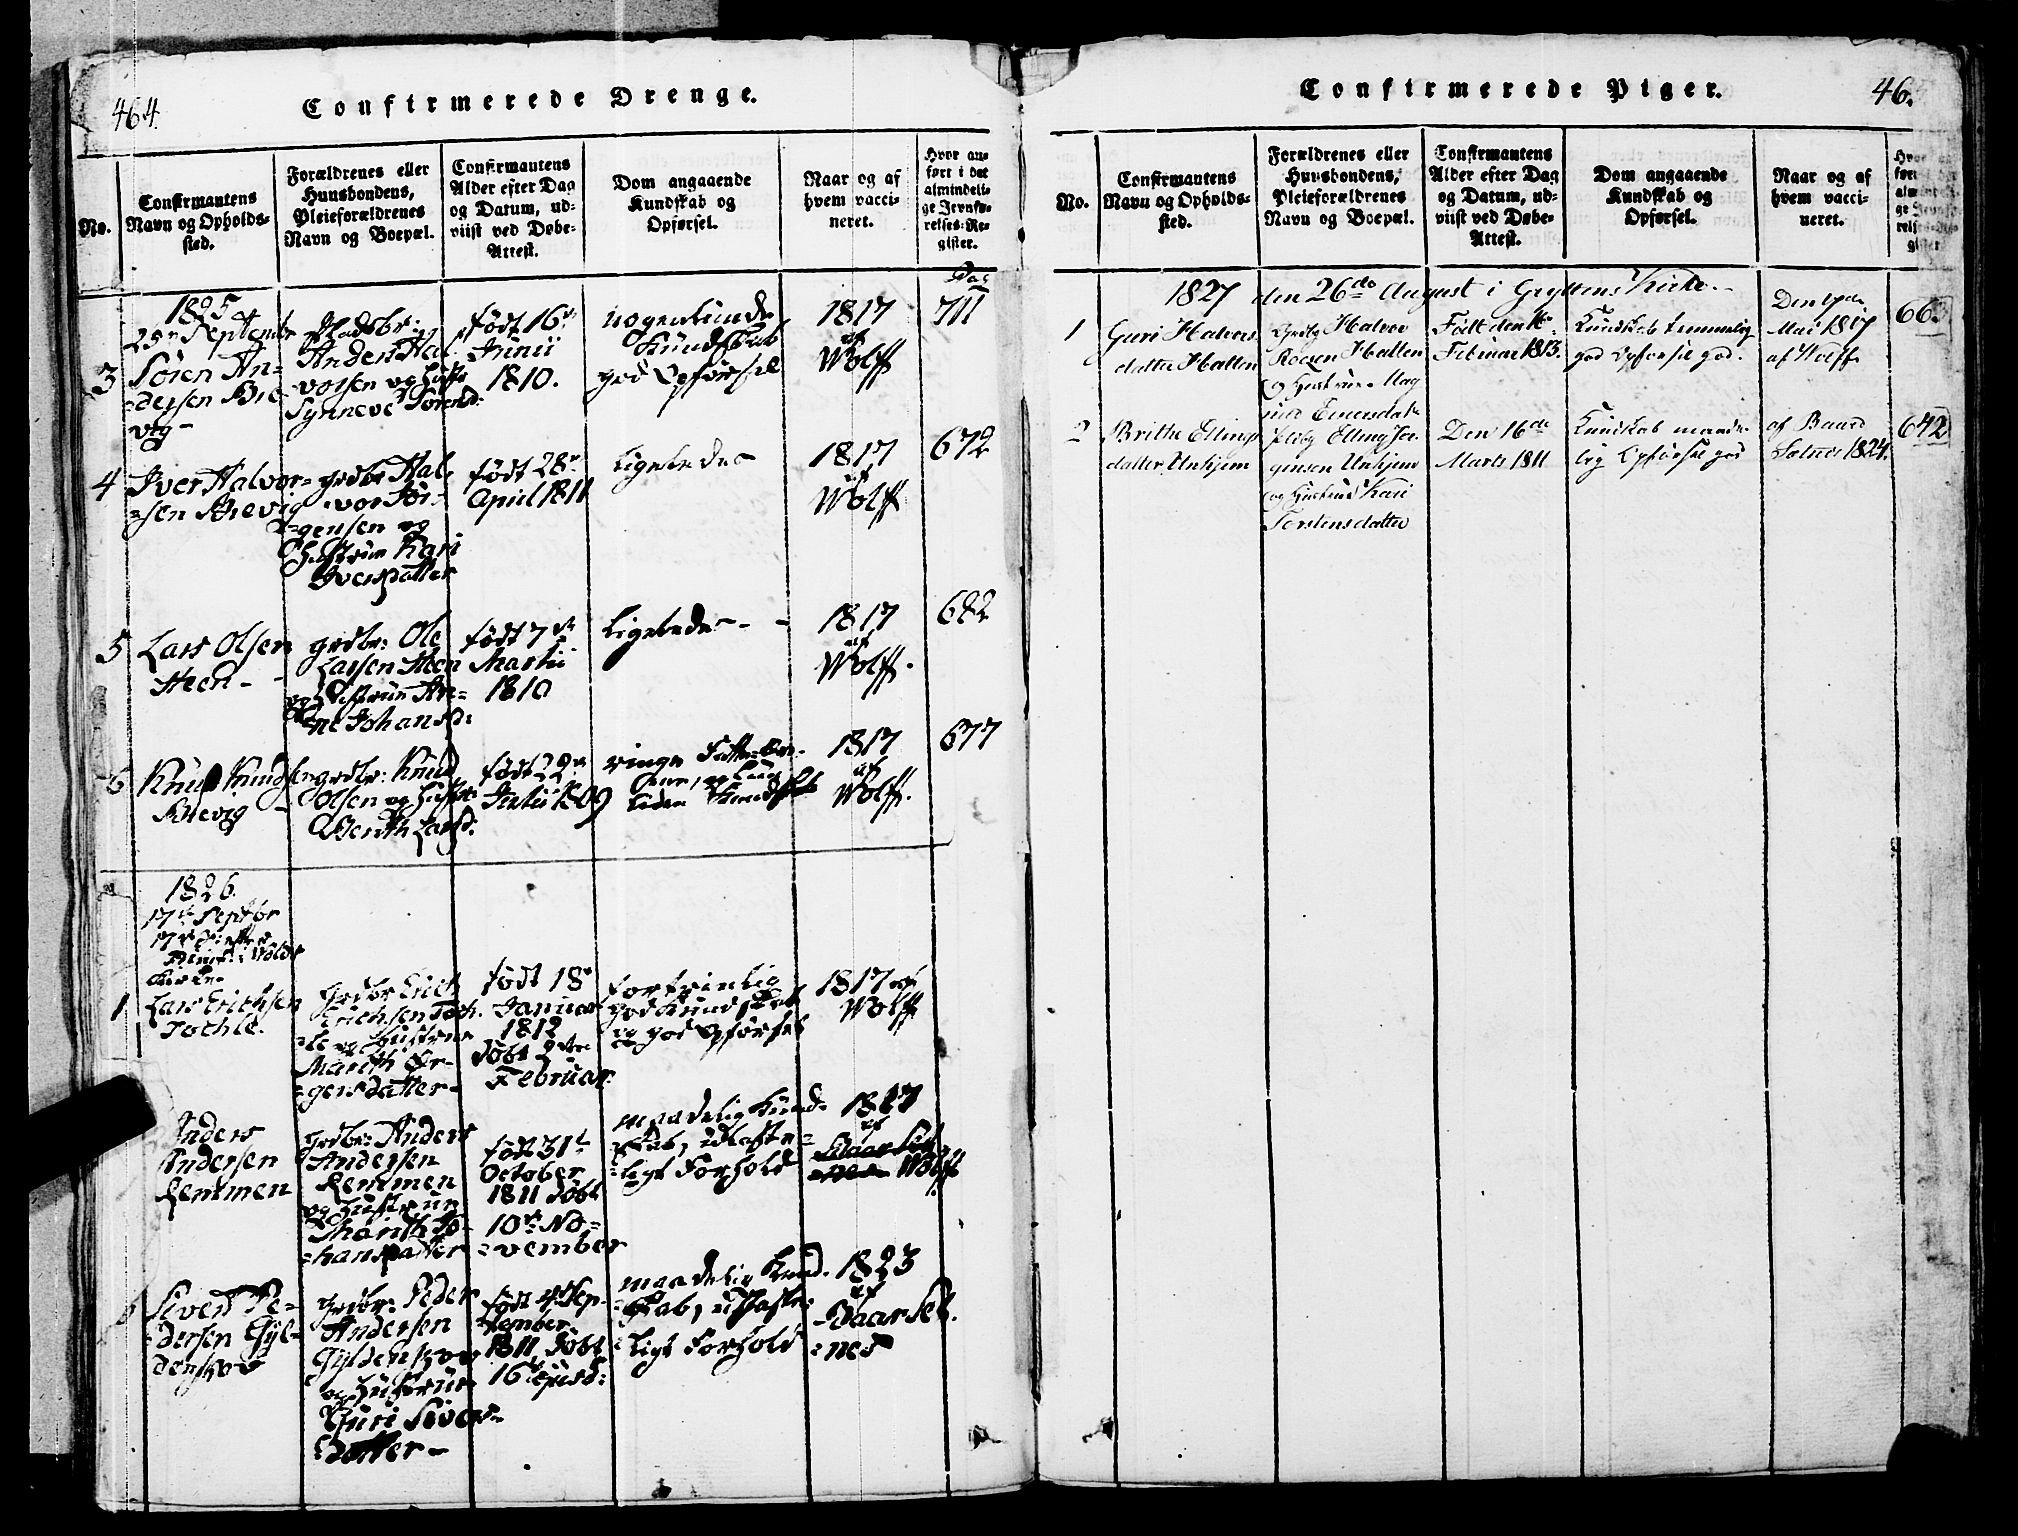 464.
Confirmerede Drenge.
No.
Confirmantens
Navn og Opholds-
sted.
Forældrenes eller
Huusbondens,
Pleieforældrenes
Navn og Boepæl.
Confirmantens
Alder efter Dag
og Datum, ud-
viist ved Døbe-
Attest.
Dom angaaende
Kundskab og
Opførsel.
Naar og af
hvem vacci-
neret.
Hvor an-
ført i det
almindeli-
ge Jevnfø-
relses-Re-
gister.
Pag
1825
25de September
3
Søren An=
=dersen Bre
vig-
Pladsbr:
Anders Hal
vorsen og Hustr
Synneve Sørensd:
født 16de
Junii
1810.
nogenlunde
Kundskab
god Opførsel
1817
af
Wolff
711
4
Iver Halvor=
=sen Brevig
grdbr Hal=
vor Jør=
=gensen og
Hustrue Kari
Iversdatter
født 28de
April 1811
Ligeledes
1817
af
Wolff
672
5
Lars Olsen
Steen - -
grdbr: Ole
Larsen Steen
og Hustrue An=
=ne Johansd:
født 7de
Martii
1810
Ligeledes - -
1817
af
Wolff.
682
6
Knud Knudsen
Brevig -
grdbr: Knud
Olsen og Hustr:
Berith Larsd:
født 22de
Julii 1809
ringe
liden Kundskab
1817
af
Wolff.
677
1826.
17de Septbr
Kirke
1
Lars Erichsen
Tochle.
Grdbr Erich
Erichsen Toch.
=le og Hustrue
Marith Ør=
=gersdatter-
født 18de
Januar
1812
døbt 2den
Februar.
fortrinlig
god Kundskab
og god Opførsel
1817 af
Wolff
Anders
Andersen
Remmen
grdbr: Anders
Andersen
Remmen
og Hustrue
Marith Jo=
=hansdatter
født 31te
October
1811 døbt
10de No=
=vember
maadelig Kund=
=skab, udlaste=
=ligt Forhold
1817
af
Wolff
Sivert Pe=
=dersen Gyl=
denskov
grdbr: Peder
Andersen
Gyldenskov
og Hustrue
Guri Sivers=
=datter-
født 4 Sep=
=tember
1811 døbt
16de ejusd:
maadelig Kund=
=skab, ustrafte=
=ligt Forhold
1823
af
Baar Set=
=nes
Confirmerede Piger.
46.
No.
Confirmantens
Navn og Opholds-
sted.
Forældrenes eller
Huusbondens,
Pleieforældrenes
Navn og Boepæl.
Confirmantens
Alder efter Dag
og Datum, ud-
viist ved Døbe-
Attest.
Dom angaaende
Kundskab og
Opførsel.
Naar og af
hvem vacci-
neret.
1827 den 26de August i Gryttens Kirke.
1
Guri Halvors
datter Hatten
Grdbr Halvor
Hatten
og Hustrue Mag
Født den 16de
Februar 1813.
Kundskab temmelig
god Opførsel god.
Den 17de
Mai 1817
af Wolff
663
2
Brithe Ellings
datter Unhjem
Elling Jør
gensen Unhjem
og Hustrue Kari
Torstensdatter
Den 16de
Marts 1811
Kundskab maade-
lig Opførsel god
af Baard
Sætnes 1824.
642